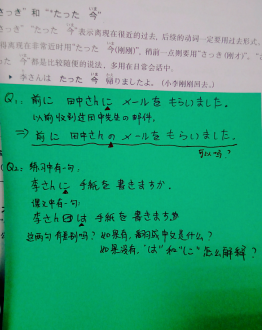 さっき" 和 "たった 今"
"たった 今"表示离现在很近的过去，后续的动词一定要用过去形式。
离现在非常近时用"たった 今(刚刚)"，稍前一点则要用"さっき(刚才)"。"
今"都是比较随便的说法，多用在日常会话中。
▶ 李さんは たった 今 帰りましたよ。(小李刚刚回去。)
Q₁: 前に 田中さんに メールを もらいました。
以前收到过田中先生の邮件。
⇒ 前に 田中さんの メールを もらいました。
可以吗？
Q₂: 练习中有一句：
李さんに 手紙を 書きますか。
课文中有一句：
李さんは 手紙を 書きます
这两句有差别吗？如果有，翻译成中文是什么？
如果没有，"は"和"に"怎么解释？